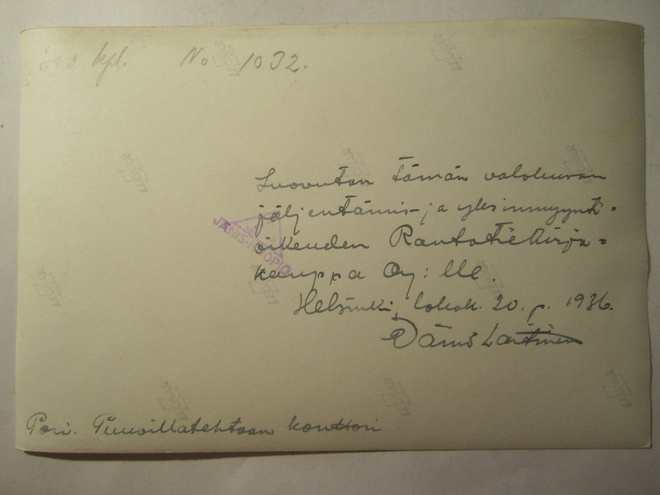 kpl. No 1032.
Luovutan tämän valokuvan
jäljentämis- ja yksinmyynti-
oikeuden Rautatiekirja-
kauppa Oy: lle.
Helsinki, lokak. 20. p. 1936.
Laitinen
Pori. Puuvillatehtaan konttori.